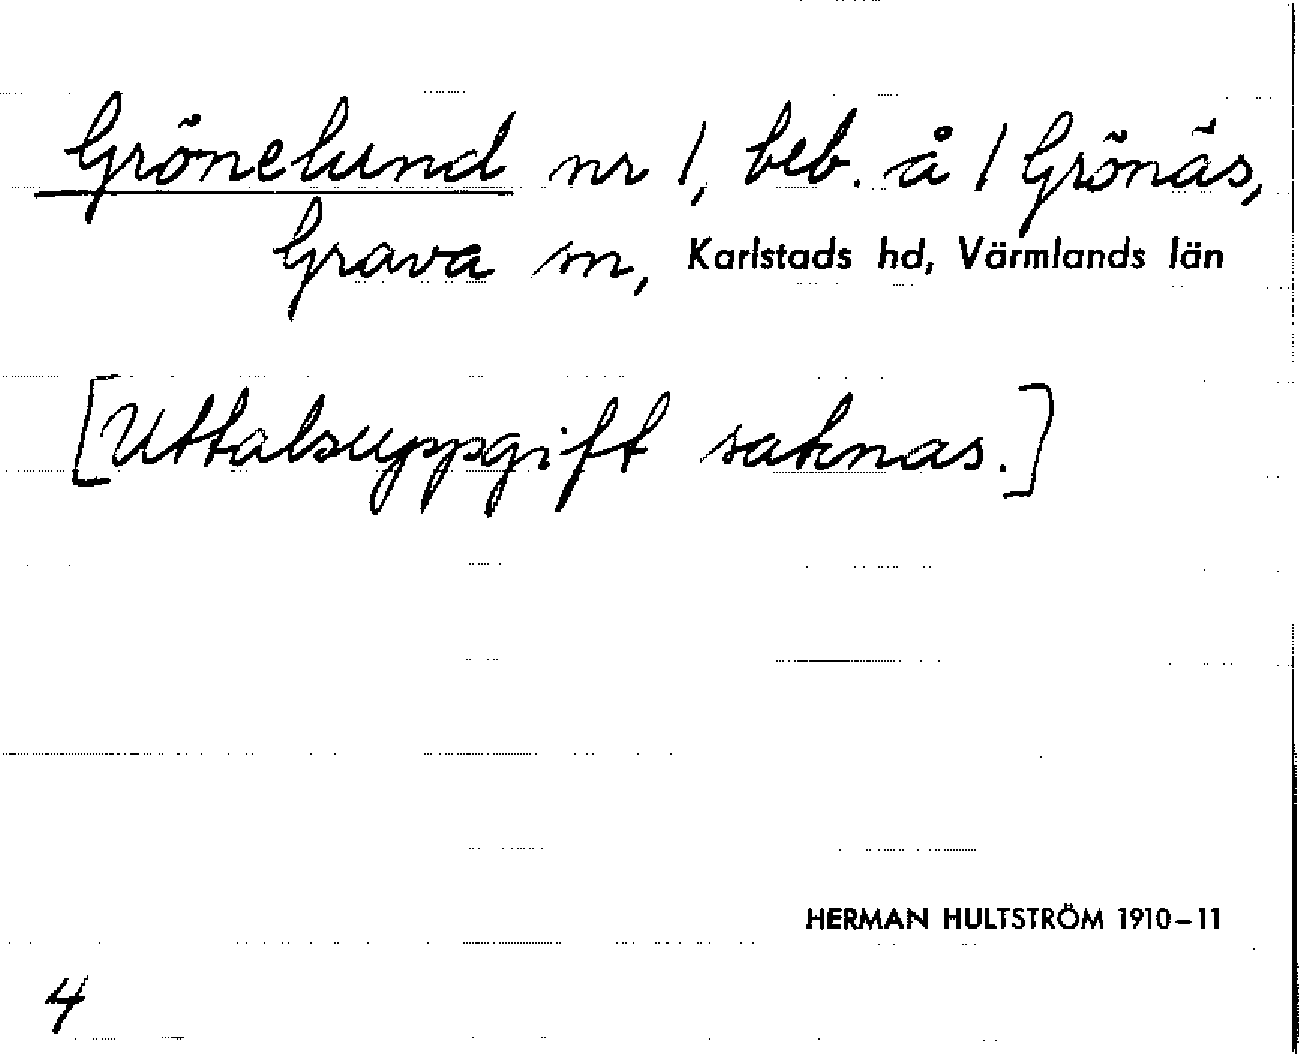 Grönelund nr 1, beb. å 1 Grönäs,
Grava sn, Karlstads hd, Värmlands län
[Uttalsuppgift saknas.]
HERMAN HULTSTRÖM 1910–11
4